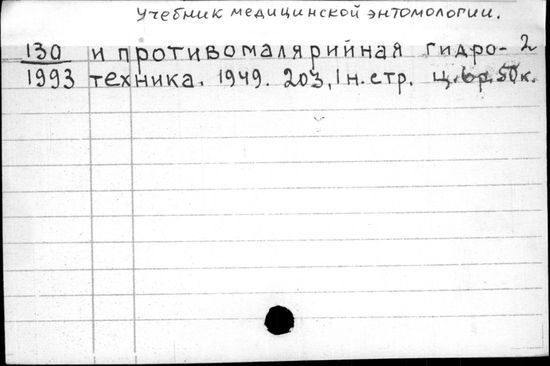 Учебник медицинской энтомологии.
130 и противомалярийная гидро- 2
1993 техника. 1949. 203, 1 н. стр. ц. 6р. 50к.